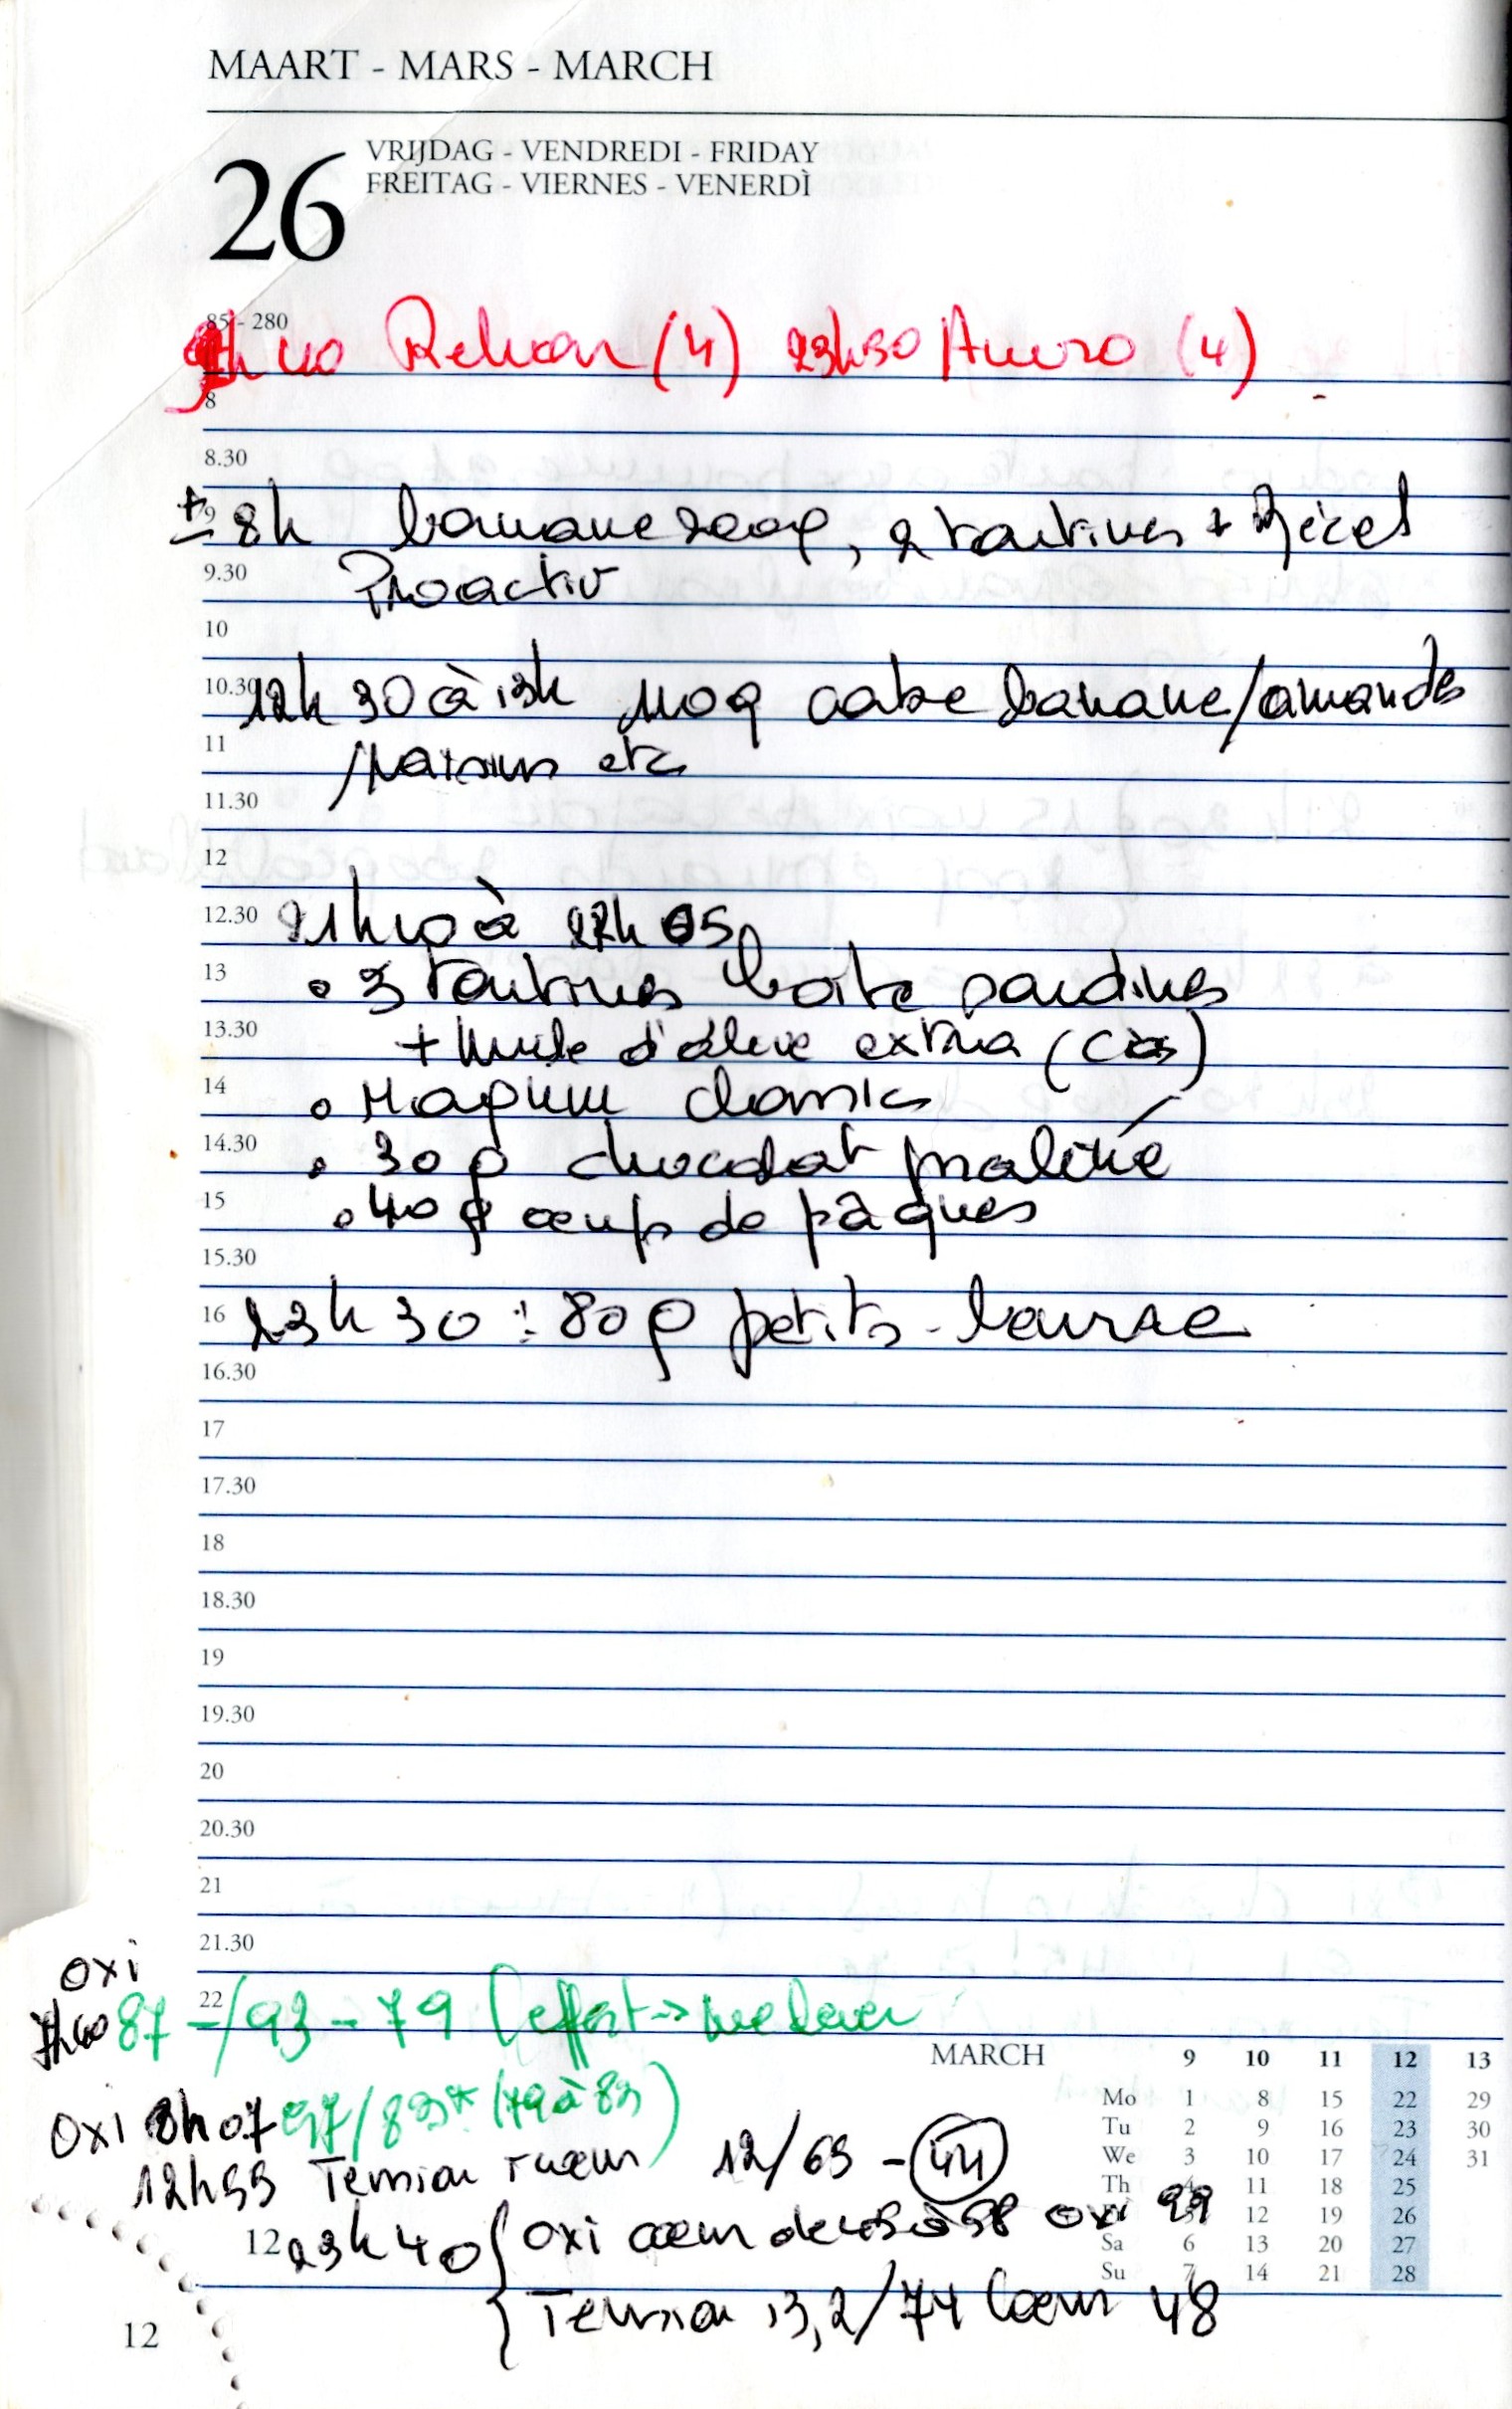 MAART - MARS - MARCH
26
VRIJDAG - VENDREDI - FRIDAY
FREITAG - VIERNES - VENERDÌ
85 - 280
h 40 (4) 23h30 (4)
8
8.30
9
± 8h banane 200g, 2 tartines +
9.30
Proactiv
10
10.30
12h 30 à 13h 110g cake banane/amandes
11
/raisins etc
11.30
12
12.30
21h40 à 22h 05
13
• 3 tartines boite sardines
13.30
+ huile d'olive extra (càs)
14
• Magnum classic
14.30
• 30 g chocolat praliné
15
• 40 g œufs de pâques
15.30
16
23h 30 : 80 g petits-beurre
16.30
17
17.30
18
18.30
19
19.30
20
20.30
21
21.30
oxi
22
7h40 87 - /93 - 79 (effort → me lever
MARCH 9 10 11 12 13
Mo 1 8 15 22 29
Tu 2 9 16 23 30
We 3 10 17 24 31
Th 4 11 18 25
12 19 26
Sa 6 13 20 27
Su 7 14 21 28
oxi 8h07 97/89* (79 à 83)
12h55 Tension + cœur 12/65 - 44
12
23h 40 { oxi cœur de 45 à 58 oxi 99
{ Tension 13,2/74 Cœur 48
12